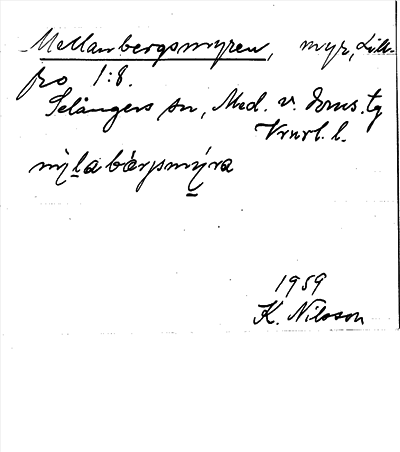 Mellanbergsmyren, myr, Lill-
fro 1:8.
Selångers sn, Med. v. doms. tg
Vrnrl. l.
mỳḷa bærjsmýra
1959
K. Nilsson